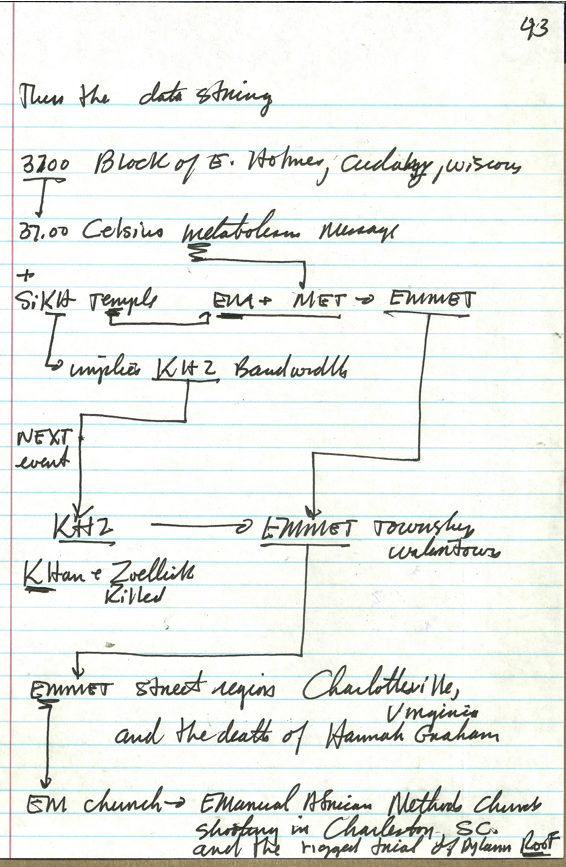 43
Thus the data string
3700 Block of E. Holmes, Cudahy, Wiscons
37.00 Celsius metabolism Message
+
SiKH Temple EM + MET → EMMET
implies KHZ Bandwidth
NEXT
event
KHZ → EMMET Township
Watertown
KHan + Zoellick
Killed
EMMET street region Charlottesville,
Virginia
and the death of Hannah Graham
EM church → EManual African Methods Church
shooting in Charleston, SC.
and the rigged trial of Dylann Roof